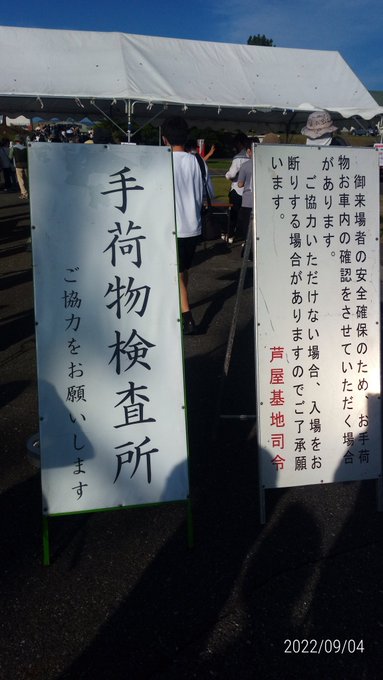 手荷物検査所
ご協力をお願いします
御来場者の安全確保のため、お手荷
物お車内の確認をさせていただく場合
があります。
ご協力いただけない場合、入場をお
断りする場合がありますのでご了承願
います。
芦屋基地司令
2022/09/04